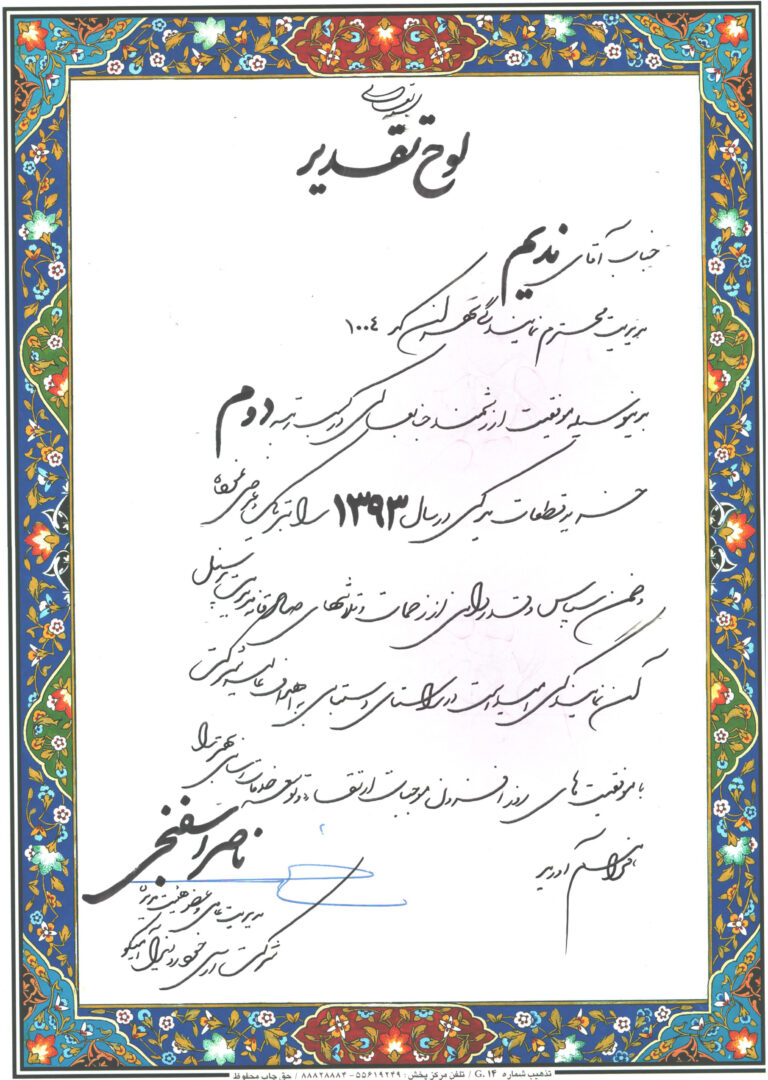 لوح تقدیر
جناب آقای ندیم
مدیریت محترم نمایندگی تهران کد ۱۰۰۴
بدینوسیله موفقیت ارزشمند جنابعالی در کسب رتبه دوم
خرید قطعات یدکی در سال ۱۳۹۳ را تبریک عرض نموده
و ضمن سپاس و قدردانی از زحمات و تلاشهای صادقانه مدیریت و پرسنل
آن نمایندگی امید است در راستای دستیابی به اهداف عالیه شرکت
با موفقیت های روز افزون موجبات ارتقاء و توسعه خدمات رسانی بهتر را
فراهم آورید
ناصر اسفنجی
مدیریت عامل و عضو هیئت مدیره
شرکت بازرسی خودرو ایران آمیکو
تذهیب شماره G.۱۴ / تلفن مرکز پخش: ۵۵۶۱۹۲۴۹-۸۸۸۲۸۸۸۴ / حق چاپ محفوظ